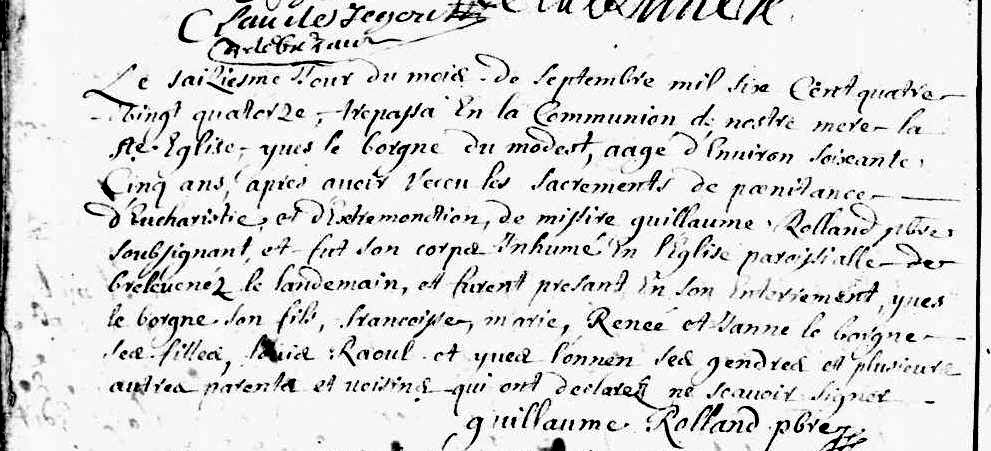 Le saiziesme Jour du mois de septembre mil six Cent quatre
vingt quatorze, trepassa En la Communion de nostre mere la
Ste Eglise, yves le borgne du modest, aagé d'Environ soixante
Cinq ans, apres avoir receu les sacrements de poenitance
d'Eucharistie, et d'Extremonction, de missire guillaume Rolland pbre
soubsignant, et fut son corps Inhumé En l'Eglise paroissialle de
brelevenéz le landemain, et furent presant En son Enterrement, yves
le borgne son fils, francoisse, marie, Renée et Janne le borgne
ses filles, Louis Raoul et yves l'onnen ses gendres et plusieurs
autres parents et voisins qui ont declarer ne scavoir signer
guillaume Rolland pbre